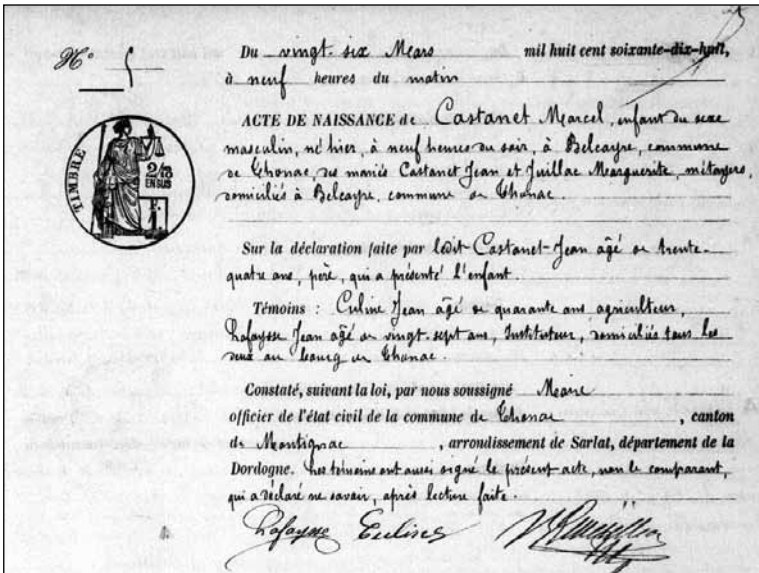 N° 5
Du vingt six Mars mil huit cent soixante-dix-huit,
à neuf heures du matin
TIMBRE
2/10
EN SUS
ACTE DE NAISSANCE de Castanet Marcel, enfant du sexe
masculin, né hier, à neuf heures du soir, à Belcayre, commune
de Thonac, des mariés Castanet Jean et Juillac Marguerite, métayers,
domiciliés à Belcayre, commune de Thonac.
Sur la déclaration faite par ledit Castanet Jean âgé de trente-
quatre ans, père, qui a présenté l'enfant.
Témoins : Jean âgé de quarante ans agriculteur,
Lafaysse Jean âgé de vingt-sept ans, Instituteur, domiciliés tous les
deux au bourg de Thonac.
Constaté, suivant la loi, par nous soussigné Maire
officier de l'état civil de la commune de Thonac, canton
de Montignac, arrondissement de Sarlat, département de la
Dordogne. Les témoins ont aussi signé le présent acte, non le comparant,
qui a déclaré ne savoir, après lecture faite.
Lafaysse